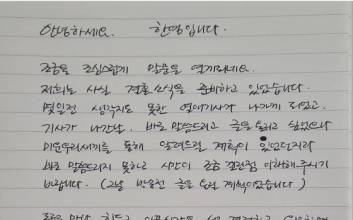 안녕하세요. 한영입니다.
조금은 조심스럽게 말문을 열게되네요.
저희는 사실 결혼소식을 준비하고 있었습니다.
몇일전 생각지도 못한 열애기사가 나가게 되었고,
기사가 나간날, 바로 말씀드리고 글을 올리고 싶었으나
미운우리새끼를 통해 알려드릴 계획이 있었던지라
바로 말씀드리지 못하고 시간이 조금 걸린점 이해해주시기
바랍니다. (그날 방송전 글을 올릴 계획이었습니다)